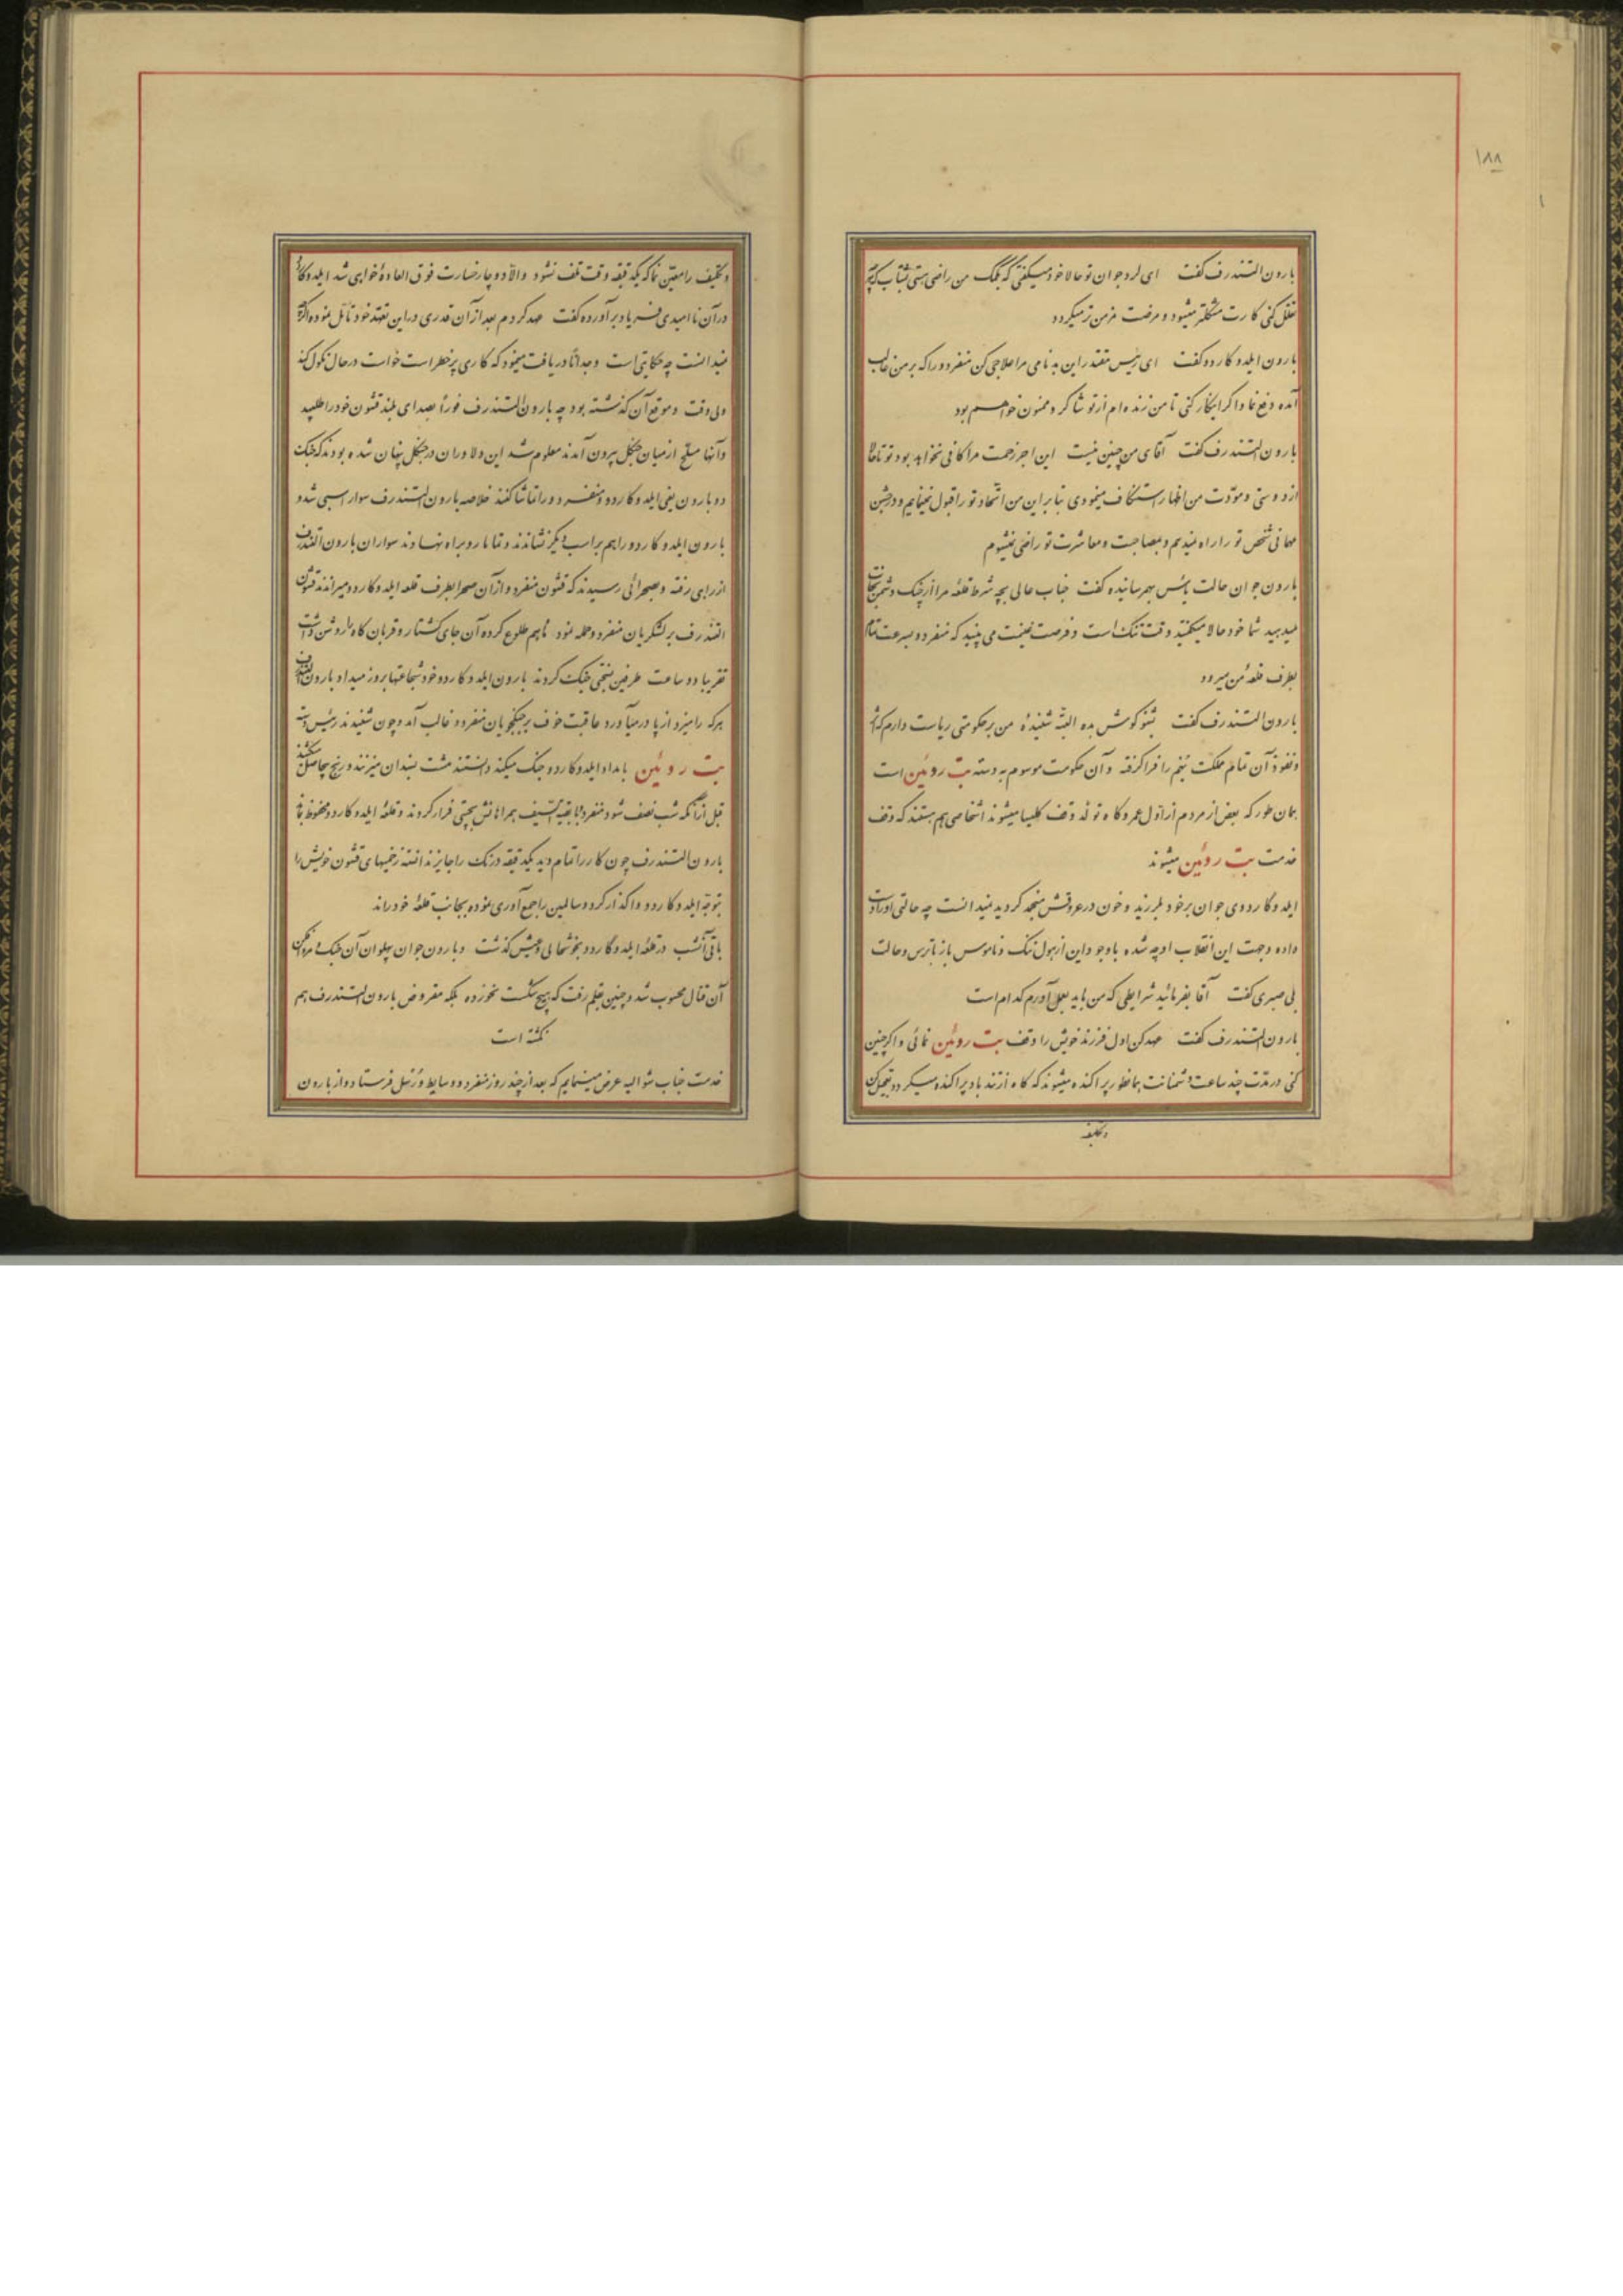 ۱۸۸
بارون التندرف گفت ای لرد جوان تو حالا خود میگفتی که بکمک من راضی هستی بشتاب که اگر
تعلل کنی کارت مشکلتر میشود و مرضت مزمن تر میگردد
بارون ایلدوکاردو گفت ای رئیس مقتدر این بدنامی مرا علاجی کن منفردو را که بر من غالب
آمده دفع نما و اگر اینکار کنی تا من زنده ام از تو شاکر و ممنون خواهم بود
بارون التندرف گفت آقای من چنین نیست این اجر زحمت مرا کافی نخواهد بود تو تا حالا
از دوستی و مودّت من اظهار استنکاف مینمودی بنابراین من اتّحاد تو را قبول نمینمایم و در جشن
مهمانی شخص تو را راه نمیدهم و بمصاحبت و معاشرت تو راضی نمیشوم
بارون جوان حالت یأس بهم رسانیده گفت جناب عالی بچه شرط قلعه مرا از چنگ دشمن نجات
میدهید شما خود حالا میگفتید وقت تنگ است و فرصت غنیمت می بینید که منفردو بسرعت تمام
بطرف قلعهٔ من میرود
بارون التندرف گفت بشنو گوش بده البتّه شنیدهٔ من بر حکومتی ریاست دارم که
و نفوذ آن تمام مملکت نیم را فرا گرفته و آن حکومت موسوم به دسته بت روئین است
همان طور که بعض از مردم از اوّل عمر و گاه تولّد وقف کلیسا میشوند اشخاصی هم هستند که وقف
خدمت بت روئین میشوند
ایلدوگاردوی جوان بر خود بلرزید و خون در عروقش منجمد گردید نمیدانست چه حالتی او را دست
داده و جهت این انقلاب او چه شده با وجود این از هول ننگ و ناموس باز با ترس و حالت
بی صبری گفت آقا بفرمائید شرایطی که من باید بعمل آورم کدام است
بارون التندرف گفت عهد کن اول فرزند خویش را وقف بت روئین نمائی و اگر چنین
کنی در مدّت چند ساعت دشمنانت بهمانطور پراکنده میشوند که کاه از تند باد پراکنده میگردد تعجیل کن
و تکلیف
و تکلیف را معیّن نما که یکدقیقه وقت تلف نشود و الّا دوچار خسارت فوق العادهٔ خواهی شد ایلدوکاردو
در آن ناامیدی فریاد برآورده گفت عهد کردم بعد از آن قدری در این تعهّد خود تأمّل نموده اگرچه
نمیدانست چه حکایتی است وجداناً دریافت مینمود که کاری پر خطر است خواست در حال نکول کند
ولی وقت و موقع آن گذشته بود چه بارون التندرف فوراً بصدای بلند قشون خود را طلبید
و آنها مسلّح از میان جنگل بیرون آمدند معلوم شد این دلاوران در جنگل پنهان شده بودند که جنگ
دو بارون یعنی ایلدوکاردو و منفردو را تماشا کنند خلاصه بارون التندرف سوار اسبی شد و
بارون ایلدوکاردو را هم بر اسب دیگر نشاندند و تماماً رو براه نهادند سواران بارون التندرف
از راهی رفته و بصحرائی رسیدند که قشون منفردو از آن صحرا بطرف قلعه ایلدوکاردو میراندند قشون
التندرف بر لشکریان منفردو حمله نمود ماهم طلوع کرده آن جای کشتار و قربان گاه را روشن داشت
تقریباً دو ساعت طرفین بسختی جنگ کردند بارون ایلدوکاردو خود شجاعتها بروز میداد بارون التندرف
هر که را میزد از پا درمیآورد عاقبت خوف بر جنگجویان منفردو غالب آمد و چون شنیدند رئیس دسته
بت روئین بامداد ایلدوکاردو جنگ میکند دانستند مشت بسندان میزنند و رنج بیحاصل میکشند
قبل از آنکه شب نصف شود منفردو با بقیّة السّیف همراهانش بسختی فرار کردند و قلعهٔ ایلدوکاردو محفوظ ماند
بارون التندرف چون کار را تمام دید یکدقیقه درنگ را جایز ندانسته زخمیهای قشون خویش را
بتوجّه ایلدوکاردو واگذار کرد و سالمین را جمع آوری نموده بجانب قلعهٔ خود راند
باقی آنشب در قلعهٔ ایلدوگاردو بخوشحالی و عیش گذشت و بارون جوان پهلوان آن جنگ و مرد میدان
آن قتال محسوب شد و چنین بقلم رفت که هیچ شکست نخورده بلکه مقروض بارون التندرف هم
نگشته است
خدمت جناب شوالیه عرض مینمایم که بعد از چند روز منفردو وسایط و رُسُل فرستاد و از بارون